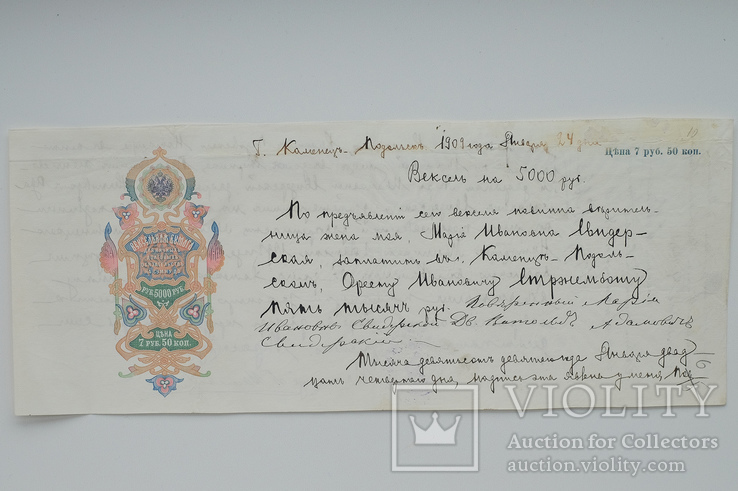 10
Г. Каменецъ-Подольскъ 1909 года Января 24 дня
Цѣна 7 руб. 50 коп.
Вексель на 5000 руб.
По предъявленiи сего векселя повинна вѣритель-
ница жена моя, Марiя Ивановна Свидер-
ская, заплатить въ г. Каменецъ-Подоль-
скомъ, Оресту Ивановичу Стржембошу
пять тысячъ руб. Повѣренный Марiи
Ивановны Свидерской Дв. Витольдъ Адамовичъ
Свидерскiй.
Тысяча девятьсотъ девятаго года Января двад
цать четвертаго дня, подпись эта явлена у меня
ВЕКСЕЛЬНАЯ БУМАГА
РУБ 5000 РУБ.
ЦѢНА
7 РУБ. 50 КОП.
VIOLITY
Auction for Collectors
auction.violity.com